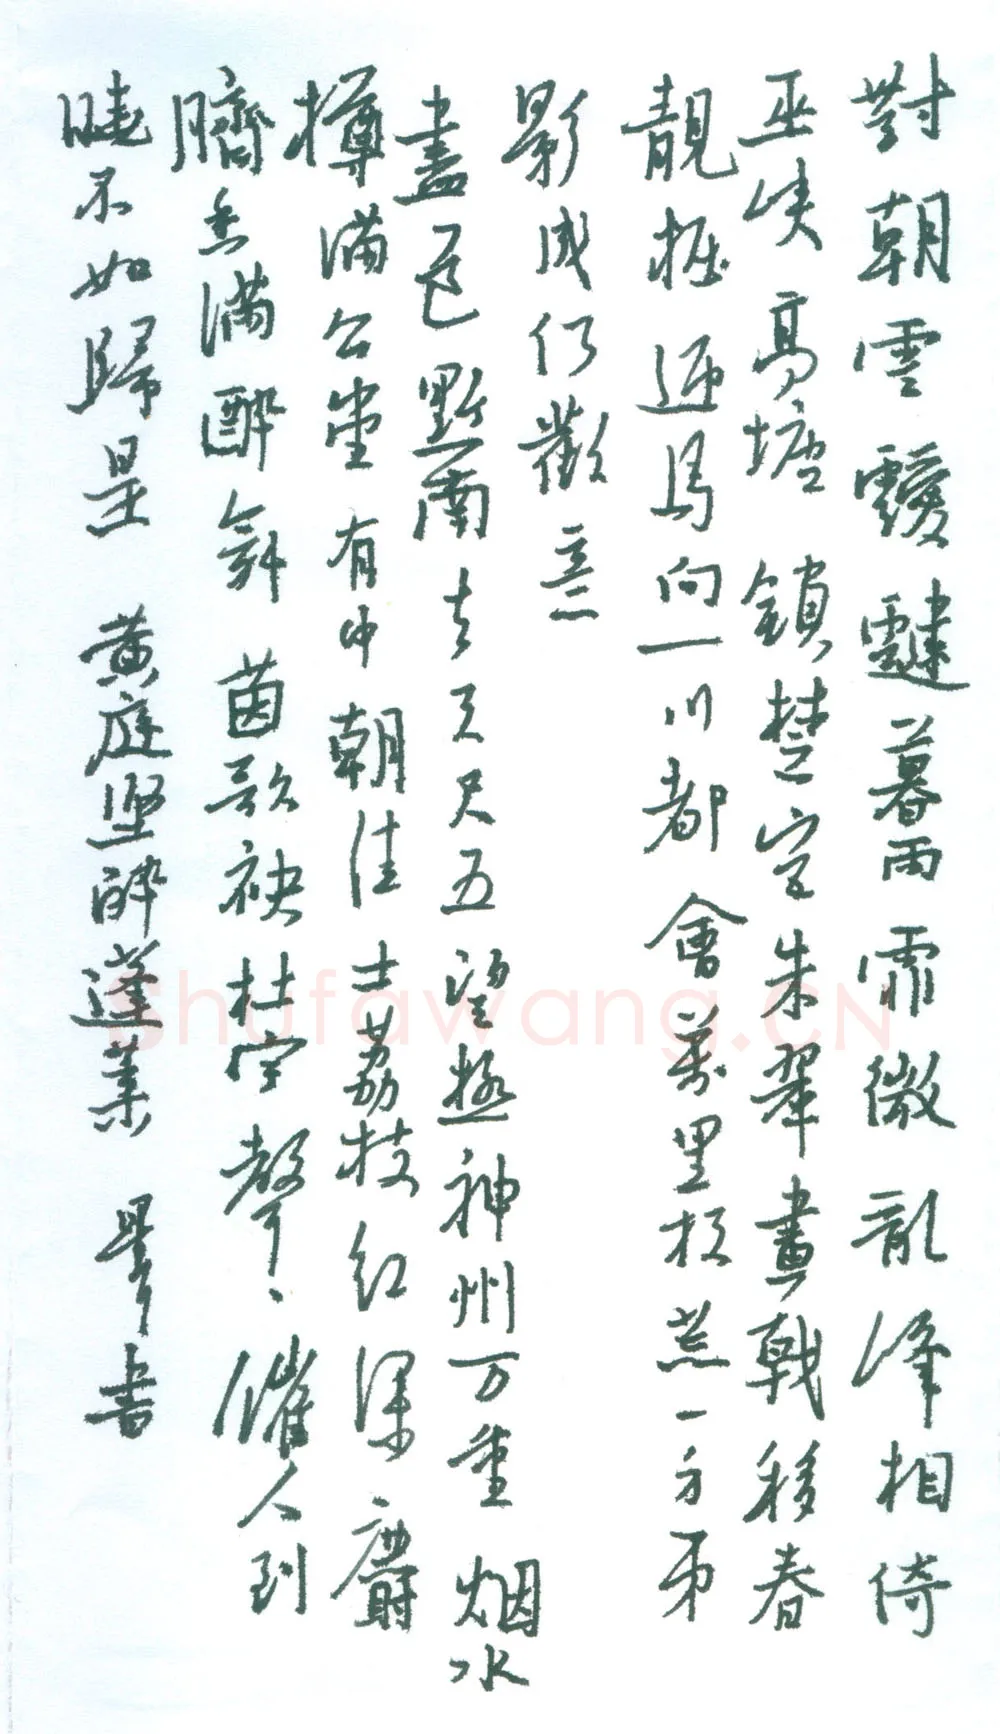 對朝雲靉靆暮雨霏微亂峰相倚
巫峽高塘鎖楚宮朱翠畫戟移春
靚妝迎馬向一川都會萬里投荒一方弔
影成何歡意
盡道黔南去天尺五望極神州万重烟水
樽酒公堂有中朝佳士荔枝紅深麝
臍香滿醉舞茵歌袂杜宇聲、催人到
曉不如歸是 黄庭坚醉蓬莱 書
shufawang.CN